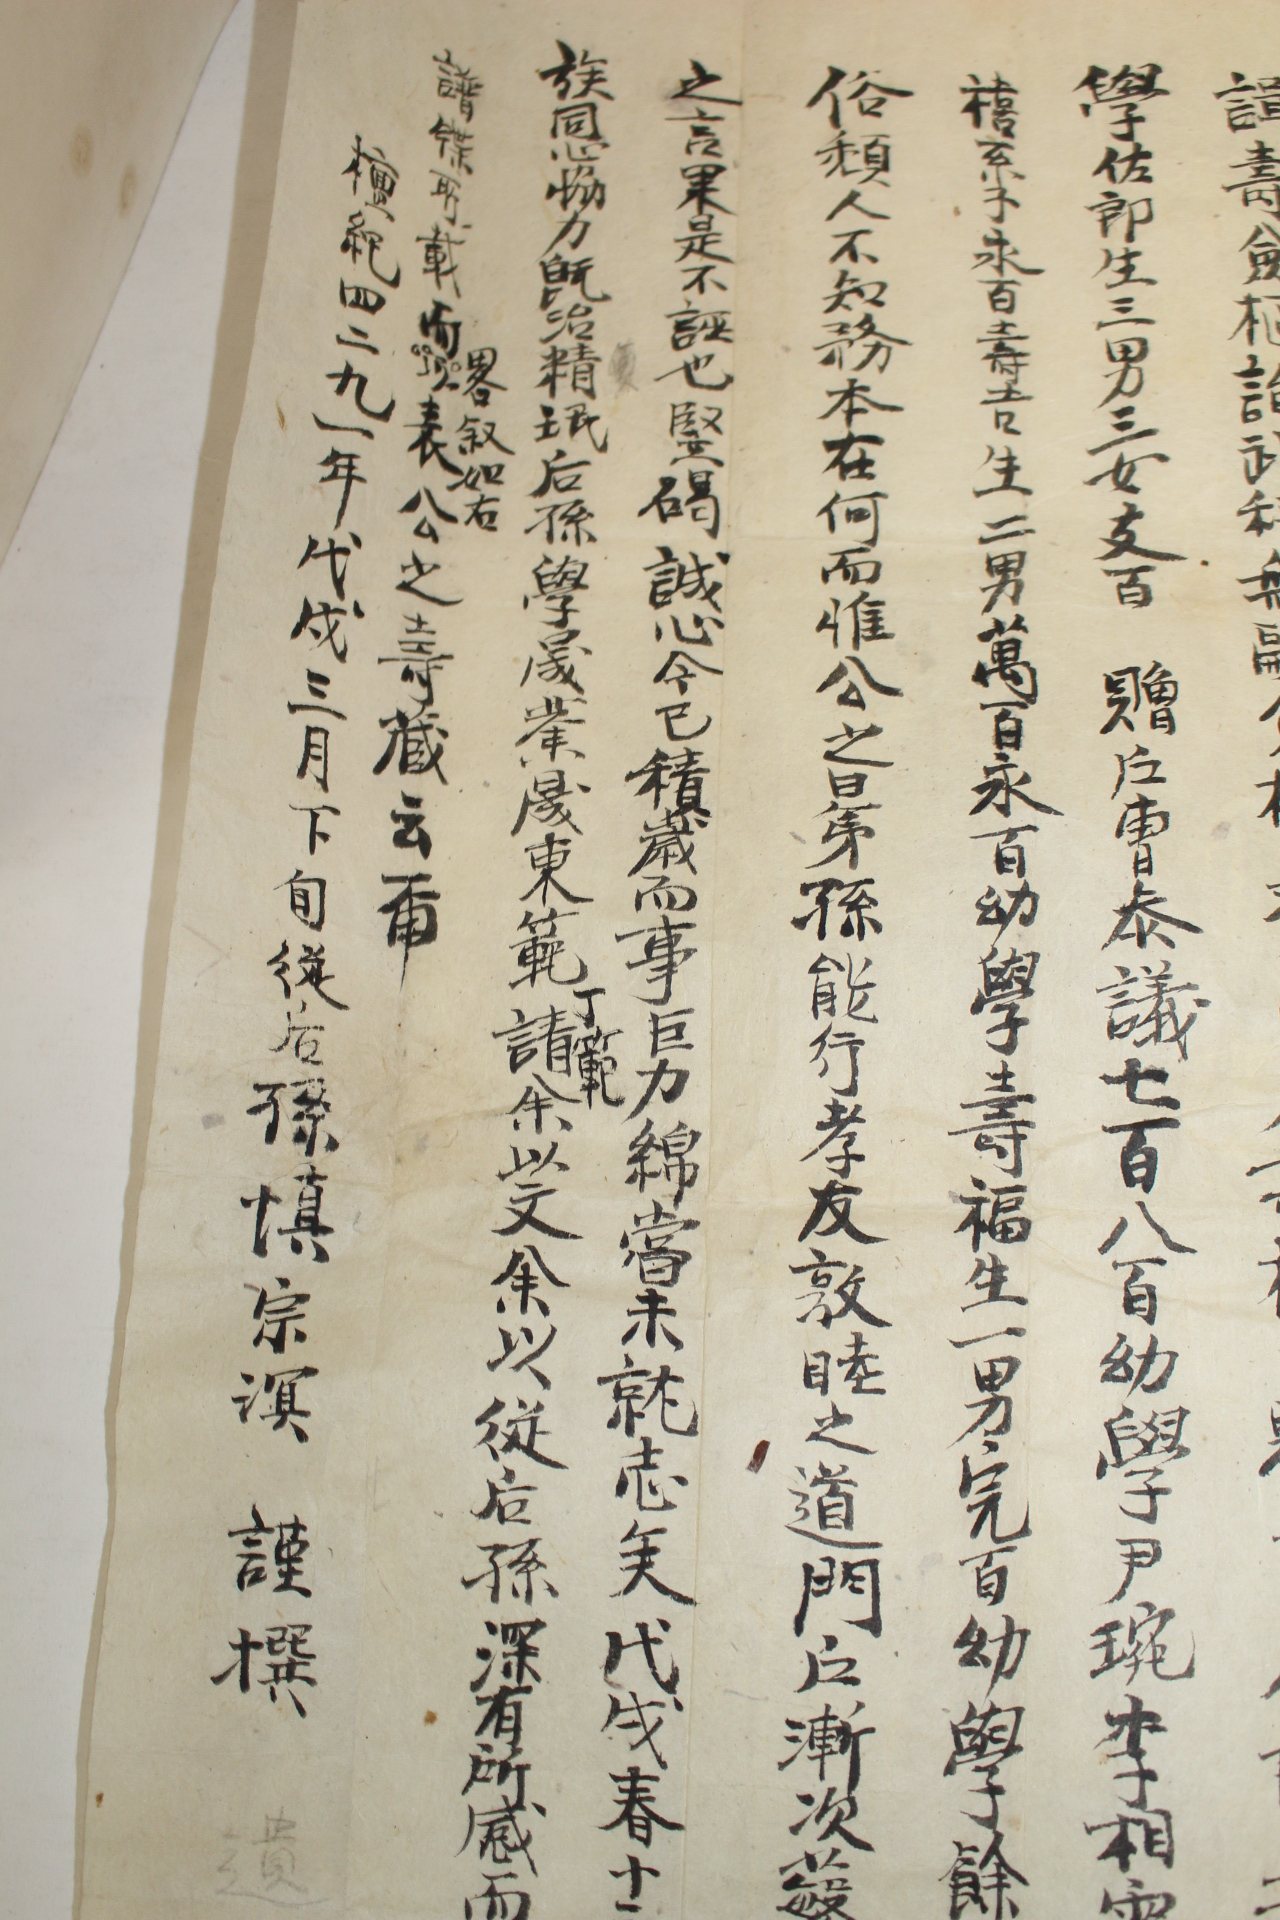 諱壽
學佐郎生三男三女支百 贈戶曹叅議七百八百幼學尹琬李相
禧系子永百壽吉生二男萬百永百幼學壽福生一男完百幼學餘
俗頹人不知務本在何而惟公之昆弟孫能行孝友敦睦之道門戶漸次
之言果是不誣也竪碣誠心今已積歲而事巨力綿當未就志矣戊戌春
族同心協力旣治精珉后孫學晟業晟東範請余以文余以從后孫深有所感而
丁範
譜牒所載而表公之壽藏云爾
畧叙如右
檀紀四二九一年戊戌三月下旬從后孫慎宗溟 謹撰
遺